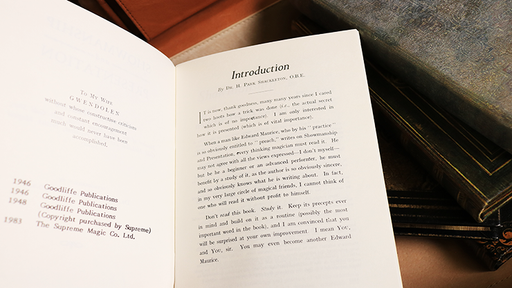 To My Wife
GWENDOLEN
without whose constructive criticism
and constant encouragement
much would never have been
accomplished.
1946 Goodliffe Publications
1946 Goodliffe Publications
1948 Goodliffe Publications
(Copyright purchased by Supreme)
1983 The Supreme Magic Co. Ltd.
Introduction
By Dr. H. Park Shackleton, O.B.E.
It is now, thank goodness, many many years since I cared
two hoots how a trick was done (i.e., the actual secret
which is of no importance). I am only interested in
how it is presented (which is of vital importance).
When a man like Edward Maurice, who by his "practice"
is so obviously entitled to "preach," writes on Showmanship
and Presentation, every thinking magician must read it. He
may not agree with all the views expressed—I don't myself—
but be he a beginner or an advanced performer, he must
benefit by a study of it, as the author is so obviously sincere,
and so obviously knows what he is writing about. In fact,
in my very large circle of magical friends, I cannot think of
one who will read it without profit to himself.
Don't read this book. Study it. Keep its precepts ever
in mind and build on it as a routine (possibly the most
important word in the book), and I am convinced that you
will be surprised at your own improvement. I mean You,
and You, sir. You may even become another Edward
Maurice.